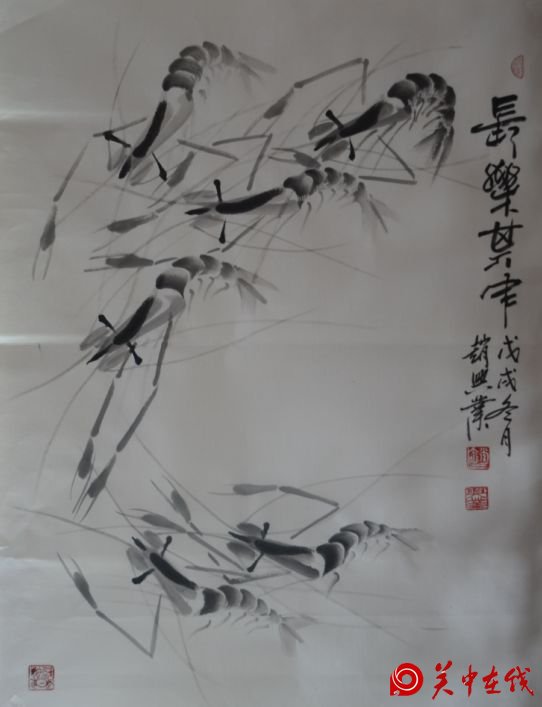 長樂其中
戊戌冬月
趙興業
关中在线